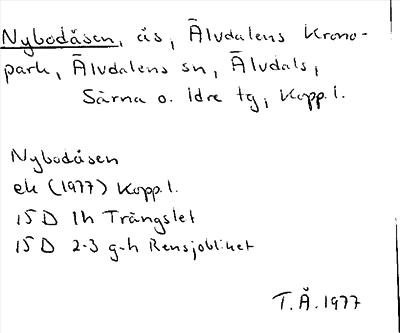 Nybodåsen, ås, Älvdalens Krono-
park, Älvdalens sn, Älvdals,
Särna o. Idre tg, Kopp.l.
Nybodåsen
ek (1977) Kopp.l.
15D 1h Trängslet
15D 2-3 g-h Rensjoblicket
T.Å.1977